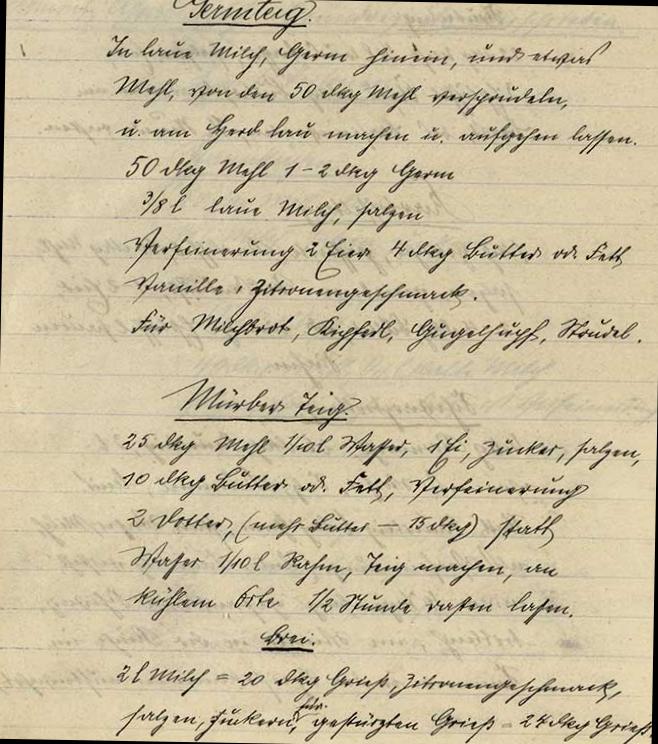 Germteig.
In laue Milch, Germ hinein, und etwas
Mehl, von den 50 dkg Mehl versprudeln,
u. am Herd lau machen u. aufgehen lassen.
50 dkg Mehl 1-2 dkg Germ
3/8 l laue Milch, salzen
Verfeinerung 2 Eier 4 dkg Butter od. Fett
Vanille, Zitronengeschmack.
Für Milchbrot, Kipferl, Gugelhupf, Strudel.
Mürber Teig.
25 dkg Mehl 1/10 l Wasser, 1 Ei, Zucker, salzen,
10 dkg Butter od. Fett, Verfeinerung
2 Dotter, (mehr Butter - 15 dkg) statt
Wasser 1/10 l Rahm, Teig machen, an
kühlem Orte 1/2 Stunde rasten lassen.
Brei.
2 l Milch = 20 dkg Grieß, Zitronengeschmack,
salzen, zuckern, für gestürzten Grieß = 24 dkg Grieß